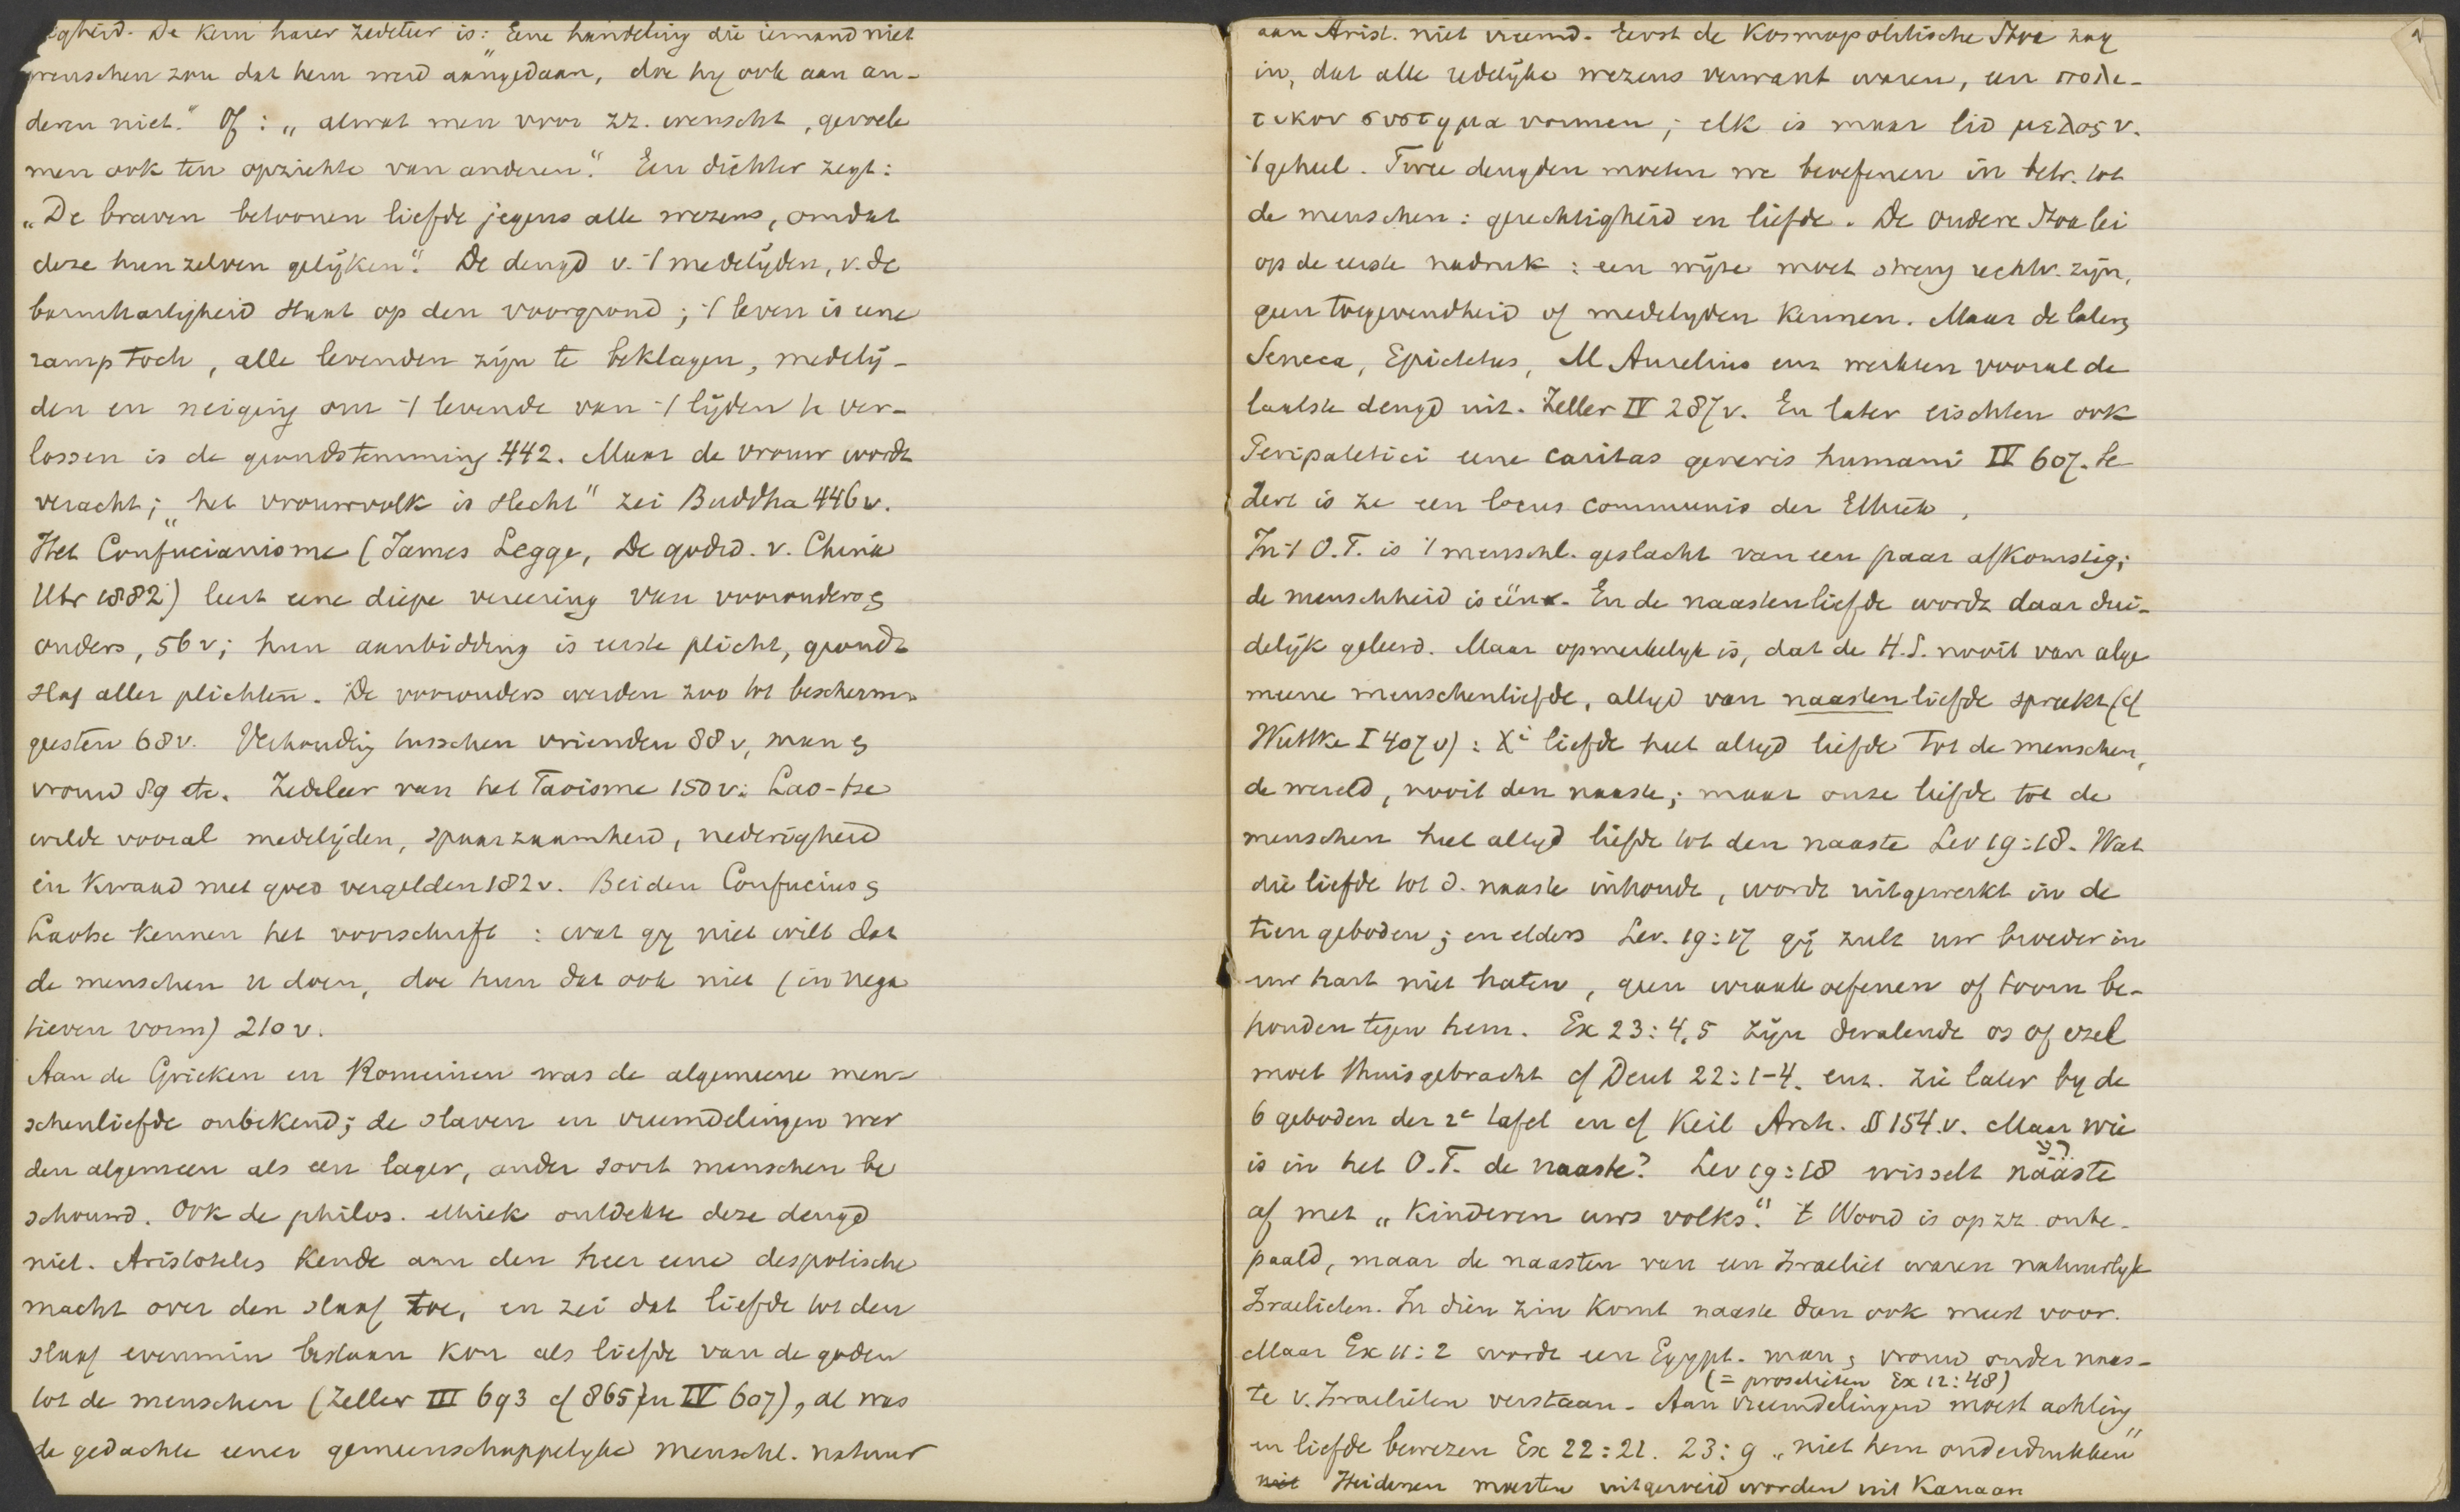 igheid. De kern harer zedeleer is: „Eene handeling die iemand niet
wenschen zou dat hem werd aangedaan, doe hij ook aan an-
deren niet." Of: „alwat men voor zz. wenscht, gevoele
men ook ten opzichte van anderen". Een dichter zegt:
„De braven betoonen liefde jegens alle wezens, omdat
deze hun zelven gelijken". De deugd v. 't medelijden, v. de
barmhartigheid staat op den voorgrond; 't leven is eene
ramp toch, alle levenden zijn te beklagen, medelij-
den en neiging om 't levende van 't lijden te ver-
lossen is de grondstemming 442. Maar de vrouw wordt
veracht; „het vrouwvolk is slecht" zei Buddha 446v.
Het Confucianisme (James Legge, De godsd. v. China
Utr 1882) leert eene diepe vereering van voorouders &
ouders, 56v; hun aanbidding is eerste plicht, gronds
slag aller plichten. De voorouders werden zoo tot bescherm-
geesten 68v. Verhouding tusschen vrienden 88v, man &
vrouw 89 etc. Zedeleer van het Taoisme 150v: Lao-tse
wilde vooral medelijden, spaarzaamheid, nederigheid
en kwaad met goed vergelden 182v. Beiden Confucius &
Laotse kennen het voorschrift: wat gij niet wilt dat
de menschen u doen, doe hun dat ook niet (in nega
tieven vorm) 210v.
Aan de Grieken en Romeinen was de algemeene men-
schenliefde onbekend; de slaven en vreemdelingen wer
den algemeen als een lager, ander soort menschen be
schouwd. Ook de philos. ethiek ontdekte deze deugd
niet. Aristoteles kende aan den heer eene despotische
macht over den slaaf toe, en zei dat liefde tot den
slaaf evenmin bestaan kon als liefde van de goden
tot de menschen (Zeller III 693 cf 865 en IV 607), al was
de gedachte eener gemeenschappelijke menschl. natuur
aan Arist. niet vreemd. Eerst de Kosmopolitische Stoa zag
in, dat alle redelijke wezens verwant waren, een πολι-
τικον συστημα vormen; elk is maar lid μελος v.
't geheel. Twee deugden moeten we beoefenen in betr. tot
de menschen: gerechtigheid en liefde. De oudere Stoa lei
op de eerste nadruk: een wijze moet streng rechtv. zijn,
geen toegevendheid of medelijden kennen. Maar de latere,
Seneca, Epictetus, M Aurelius enz werkten vooral de
laatste deugd uit. Zeller IV 287v. En later eischten ook
Peripatetici eene caritas generis humani IV 607. Se
dert is ze een locus communis der Ethiek.
In 't O.T. is 't menschl. geslacht van een paar afkomstig;
de menschheid is één. En de naastenliefde wordt daar dui-
delijk geleerd. Maar opmerkelijk is, dat de H.S. nooit van alge
meene menschenliefde, altijd van naastenliefde spreekt (cf
Wuttke I 407v): Xi liefde heet altijd liefde tot de menschen,
de wereld, nooit den naaste; maar onze liefde tot de
menschen heet altijd liefde tot den naaste Lev 19:18. Wat
die liefde tot d. naaste inhoudt, wordt uitgewerkt in de
tien geboden; en elders Lev. 19:17 gij zult uw broeder in
uw hart niet haten, geen wraak oefenen of toorn be-
houden tegen hem. Ex 23:4,5 zijn dwalende os of ezel
moet thuisgebracht cf Deut 22:1-4. enz. Zie later bij de
6 geboden der 2e tafel en cf Keil Arch. § 154.v. Maar wie
is in het O.T. de naaste? Lev 19:18 wisselt naaste רֵעַ
af met „kinderen uws volks." 't Woord is op zz. onbe-
paald, maar de naasten van een Israeliet waren natuurlijk
Israelieten. In dien zin komt naaste dan ook meest voor.
Maar Ex 11:2 wordt een Egypt. man & vrouw onder naas-
te v. Israelieten verstaan. Aan vreemdelingen (= proselieten Ex 12:48) moest achting
en liefde bewezen Ex 22:21. 23:9 „niet hem onderdrukken"
niet Heidenen moesten uitgeroeid worden uit Kanaan